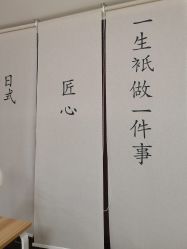 一生衹做一件事
匠心
日式